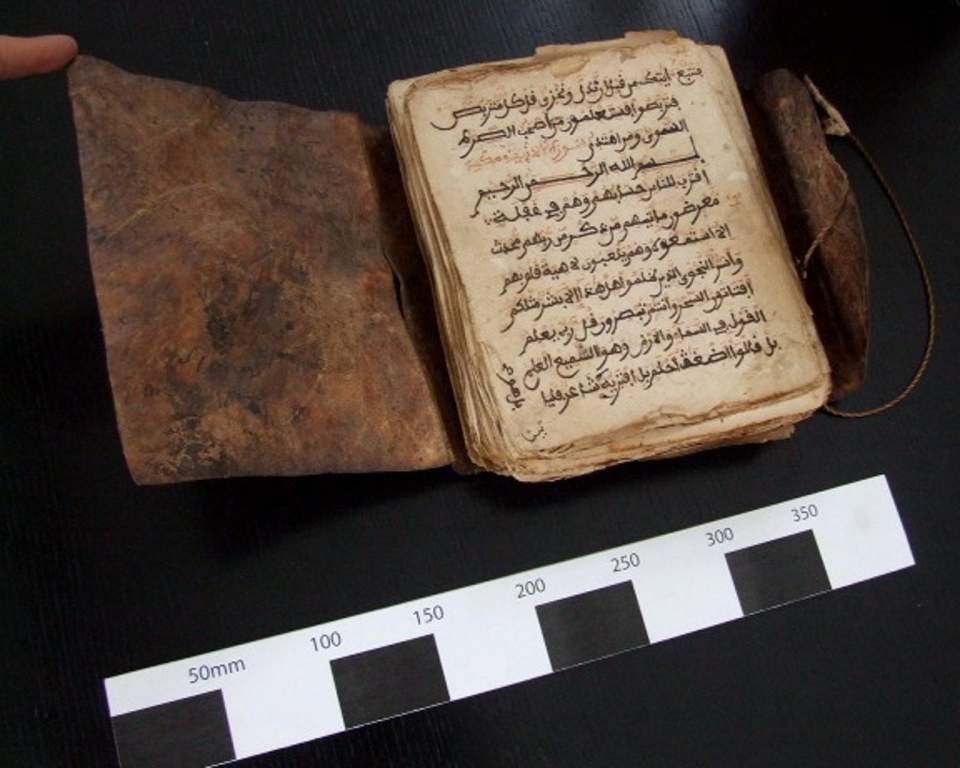 فنتبع ايتك من قبل ان نذل ونخزى قل كل متربص
فتربصوا فستعلمون من اصحب الصرط
السوى ومن اهتدى سورة الانبياء مكية
بسم الله الرحمن الرحيم
اقترب للناس حسابهم وهم في غفلة
معرضون ما ياتيهم من ذكر من ربهم محدث
الا استمعوه وهم يلعبون لاهية قلوبهم
واسروا النجوى الذين ظلموا هل هذا الا بشر مثلكم
افتاتون السحر وانتم تبصرون قل ربي يعلم
القول في السماء والارض وهو السميع العليم
بل قالوا اضغث احلم بل افتريه شاعر فليا
بل هو
تنا
50mm 100 150 200 250 300 350